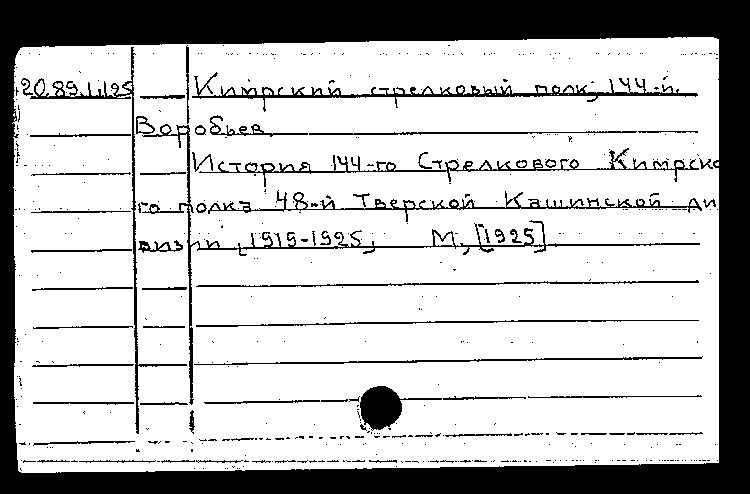 20.89.1.125 Кимрский стрелковый полк, 144-й.
Воробьев.
История 144-го Стрелкового Кимрско
го полка 48-й Тверской Кашинской ди
визии [1919-1925] М, [1925]